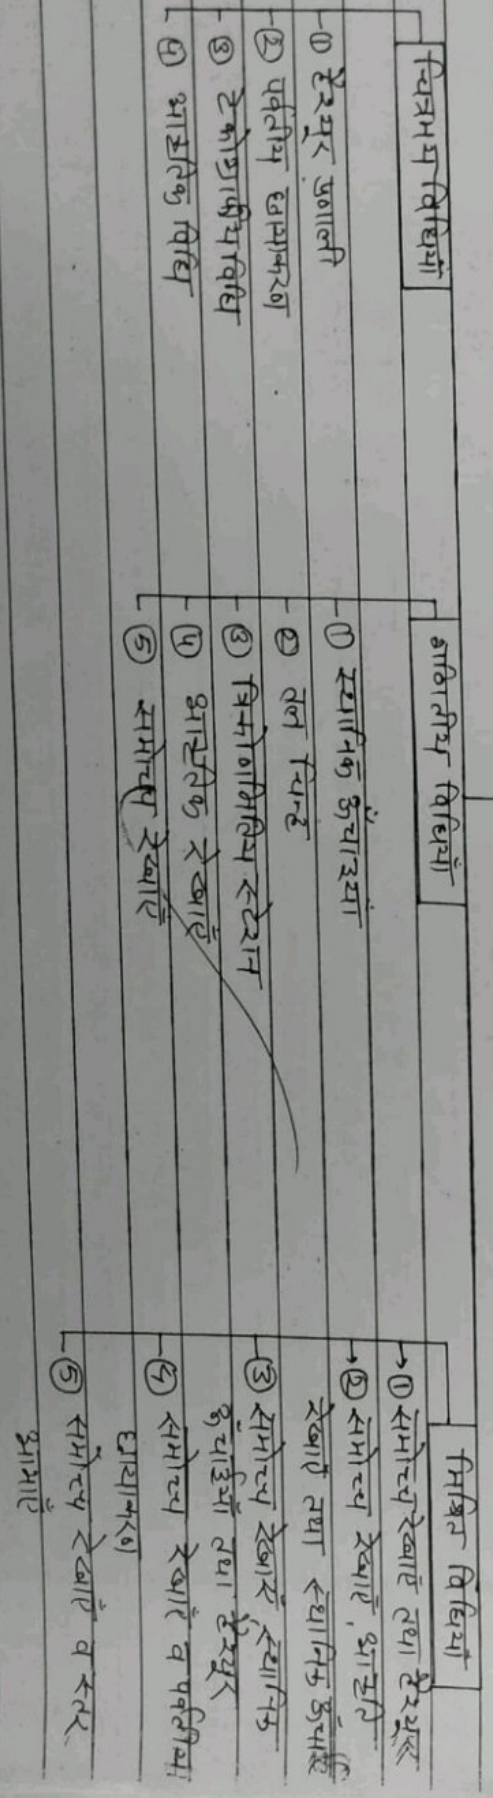 चित्रमय विधियाँ
① हैश्यूर प्रणाली
② पर्वतीय छायाकरण
③ रेकोग्राफीय विधि
④ आकृतिक विधि
गणितीय विधियाँ
① स्थानिक ऊँचाइयाँ
② तल चिन्ह
③ त्रिकोणमितिय स्टेशन
④ आकृतिक रेखाएँ
⑤ समोच्च रेखाएँ
मिश्रित विधियाँ
① समोच्च रेखाएँ तथा हैश्यूर
② समोच्च रेखाएँ, आकृति
रेखाएँ तथा स्थानिक ऊँचाई
③ समोच्च रेखाएँ स्थानिक
ऊँचाईयाँ तथा हैश्यूर
④ समोच्च रेखाएँ व पर्वतीय
छायाकरण
⑤ समोच्च रेखाएँ व स्तर
आभाएँ